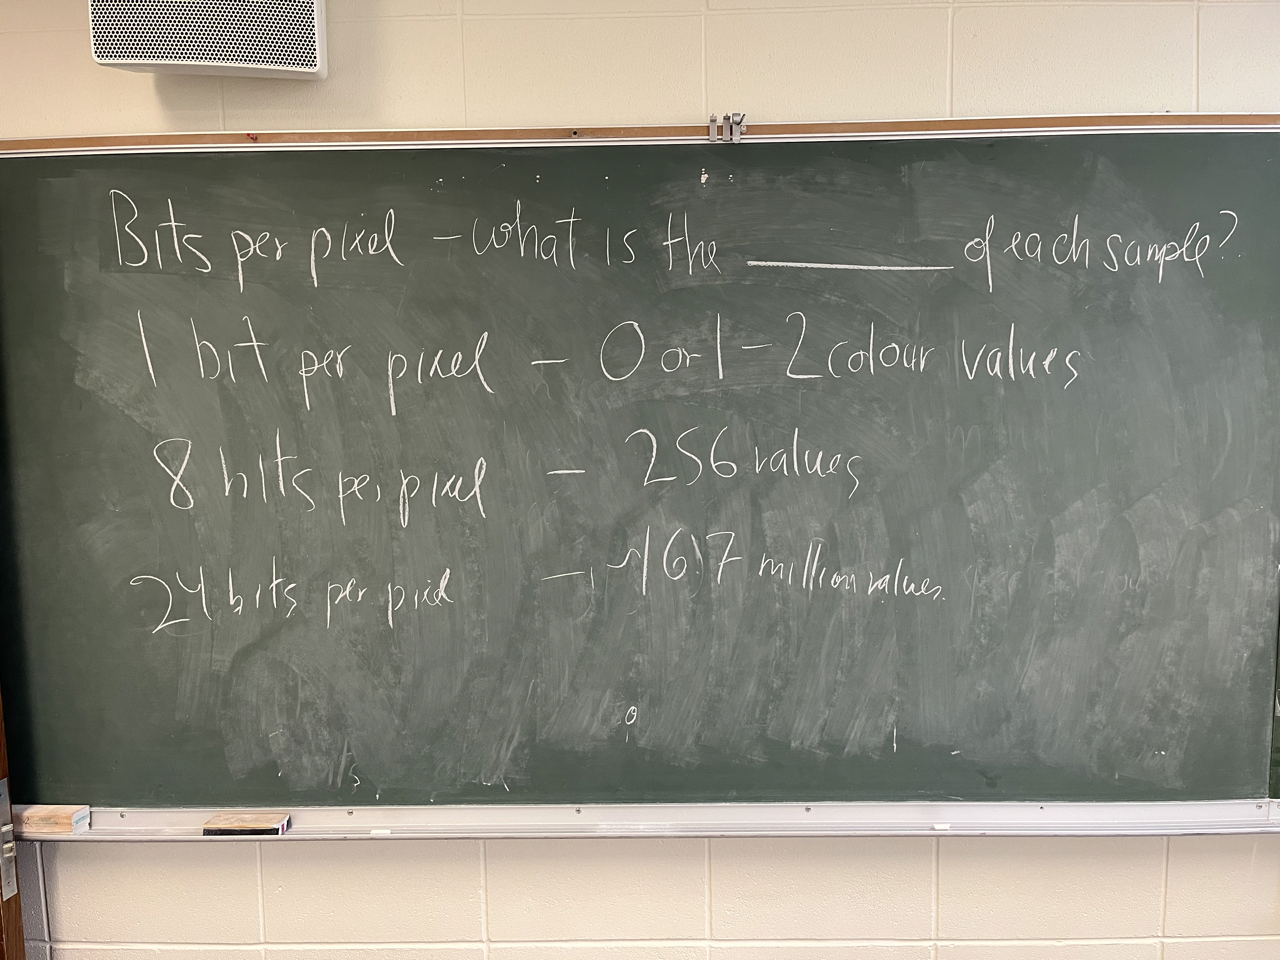 Bits per pixel - what is the ________ of each sample?
1 bit per pixel - 0 or 1 - 2 colour values
8 bits per pixel - 256 values
24 bits per pixel - ~16.7 million values.